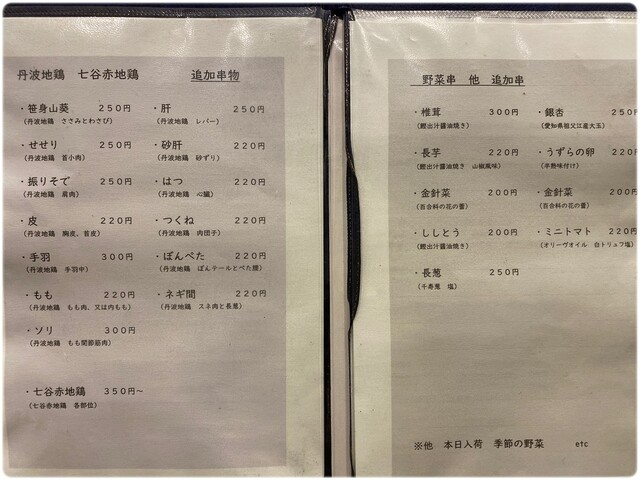 丹波地鶏　七谷赤地鶏　　追加串物
・笹身山葵　２５０円
（丹波地鶏　ささみとわさび）
・せせり　２５０円
（丹波地鶏　首小肉）
・振りそで　２５０円
（丹波地鶏　肩肉）
・皮　２２０円
（丹波地鶏　胸皮、首皮）
・手羽　３００円
（丹波地鶏　手羽中）
・もも　２２０円
（丹波地鶏　もも肉、又は内もも）
・ソリ　３００円
（丹波地鶏　もも関節筋肉）
・七谷赤地鶏　３５０円～
（七谷赤地鶏　各部位）
・肝　２５０円
（丹波地鶏　レバー）
・砂肝　２２０円
（丹波地鶏　砂ずり）
・はつ　２２０円
（丹波地鶏　心臓）
・つくね　２２０円
（丹波地鶏　肉団子）
・ぽんぺた　２２０円
（丹波地鶏　ぽんテールとぺた腰）
・ネギ間　２２０円
（丹波地鶏　スネ肉と長葱）
野菜串　他　追加串
・椎茸　３００円
（鰹出汁醤油焼き）
・長芋　２２０円
（鰹出汁醤油焼き　山椒風味）
・金針菜　２００円
（百合科の花の蕾）
・ししとう　２００円
（鰹出汁醤油焼き）
・長葱　２５０円
（千寿葱　塩）
・銀杏　２５０
（愛知県祖父江産大玉）
・うずらの卵　２２０円
（半熟味付け）
・金針菜　２００円
（百合科の花の蕾）
・ミニトマト　２２０円
（オリーヴオイル　白トリュフ塩）
※他　本日入荷　季節の野菜　　etc